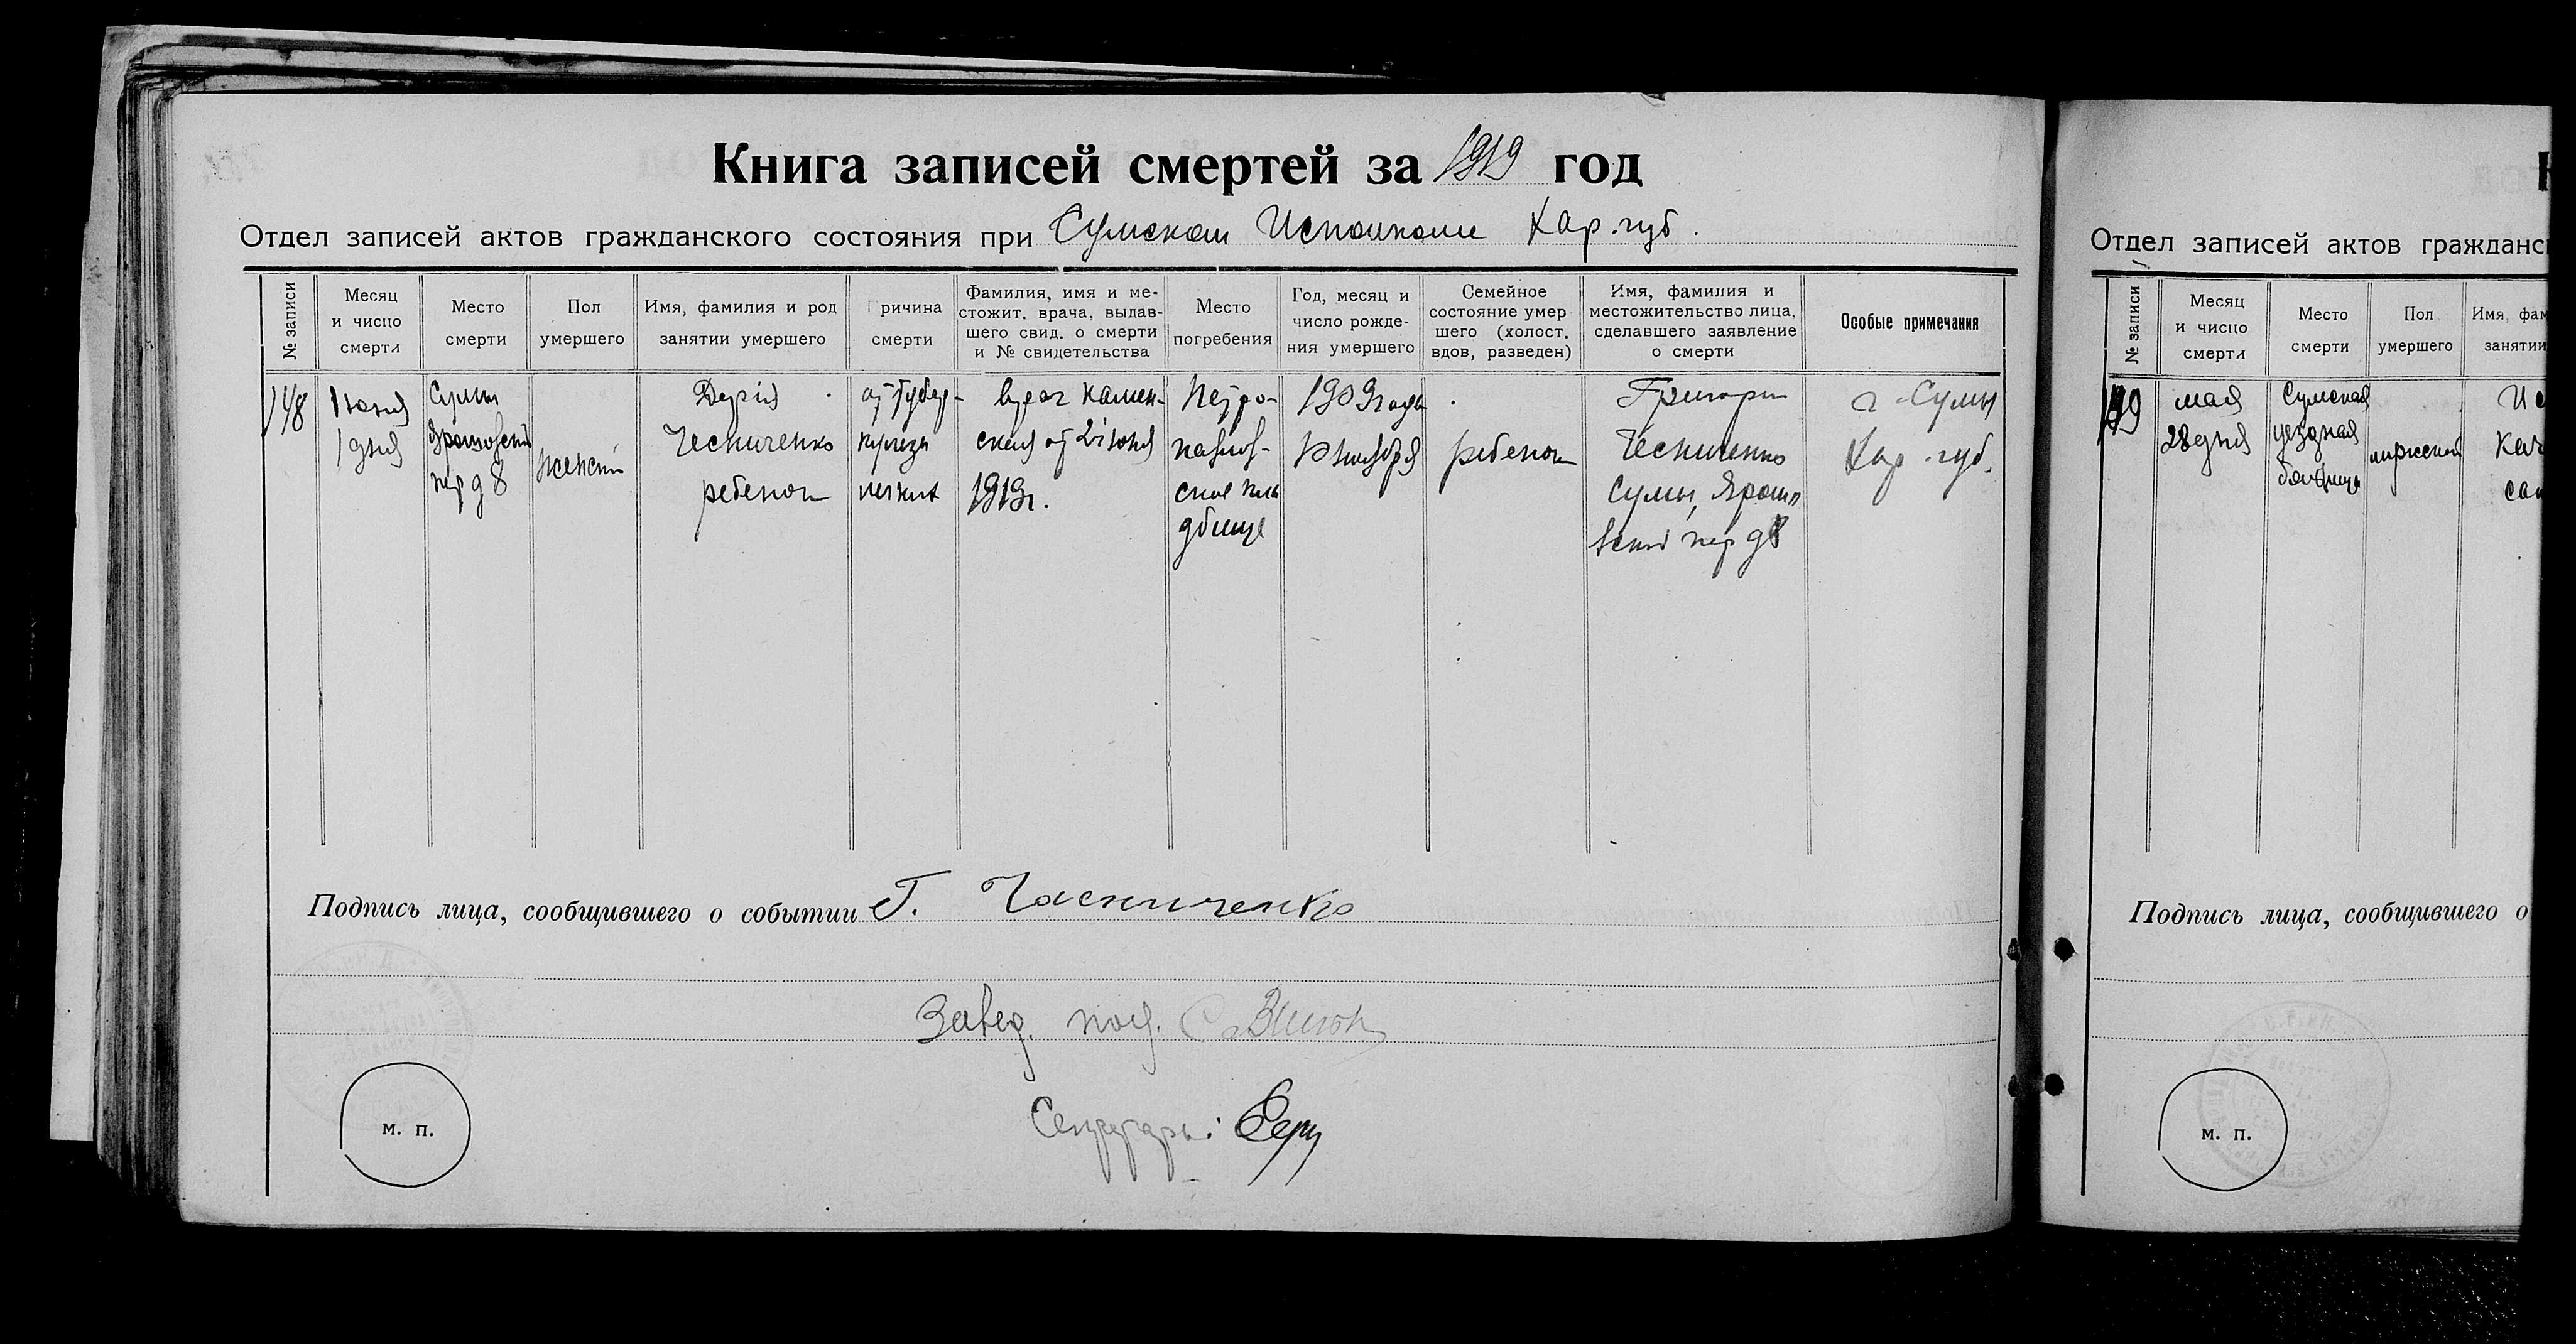 Книга записей смертей за 1919 год
Отдел записей актов гражданского состояния при Сумском Исполкоме Хар. губ.
№ записи
Месяц
и число
смерти
Место
смерти
Пол
умершего
Имя, фамилия и род
занятии умершего
Причина
смерти
Фамилия, имя и ме-
стожит. врача, выдав-
шего свид. о смерти
и № свидетельства
Место
погребения
Год, месяц и
число рожде-
ния умершего
Семейное
состояние умер
шего (холост.
вдов, разведен)
Имя, фамилия и
местожительство лица,
сделавшего заявление
о смерти
Особые примечания
148
Июня
1 дня
Сумы
Ярошовский
пер д 8
женский
Дария
Чесниченко
ребенок
от тубер-
кулеза
легких
врач Камен-
ский от 2 июня
1919 г.
Петро-
павлов-
ское кла
дбище
1909 года
ребенок
Григорий
Чесниченко
Сумы, Ярошо
вский пер д 8
г. Сумы
Хар. губ.
Подпись лица, сообщившего о событии Г. Часниченко
Завед. под.
Секретарь:
м. п.
Отдел записей актов гражданс
№ записи
Месяц
и число
смерти
Место
смерти
Пол
умершего
Имя, фам
занятии
149
мая
28 дня
Сумская
уездная
больница
мужской
Подпись лица, сообщившего о
м. п.